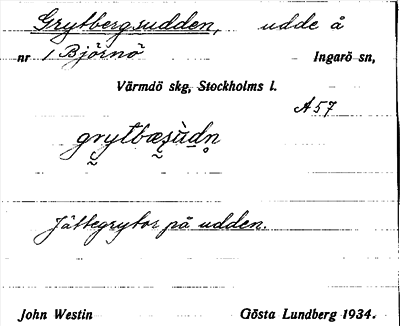 Grytbergsudden, udde å
nr 1 Björnö Ingarö sn,
Värmdö skg, Stockholms l.
A57
Jättegrytor på udden.
John Westin Gösta Lundberg 1934.